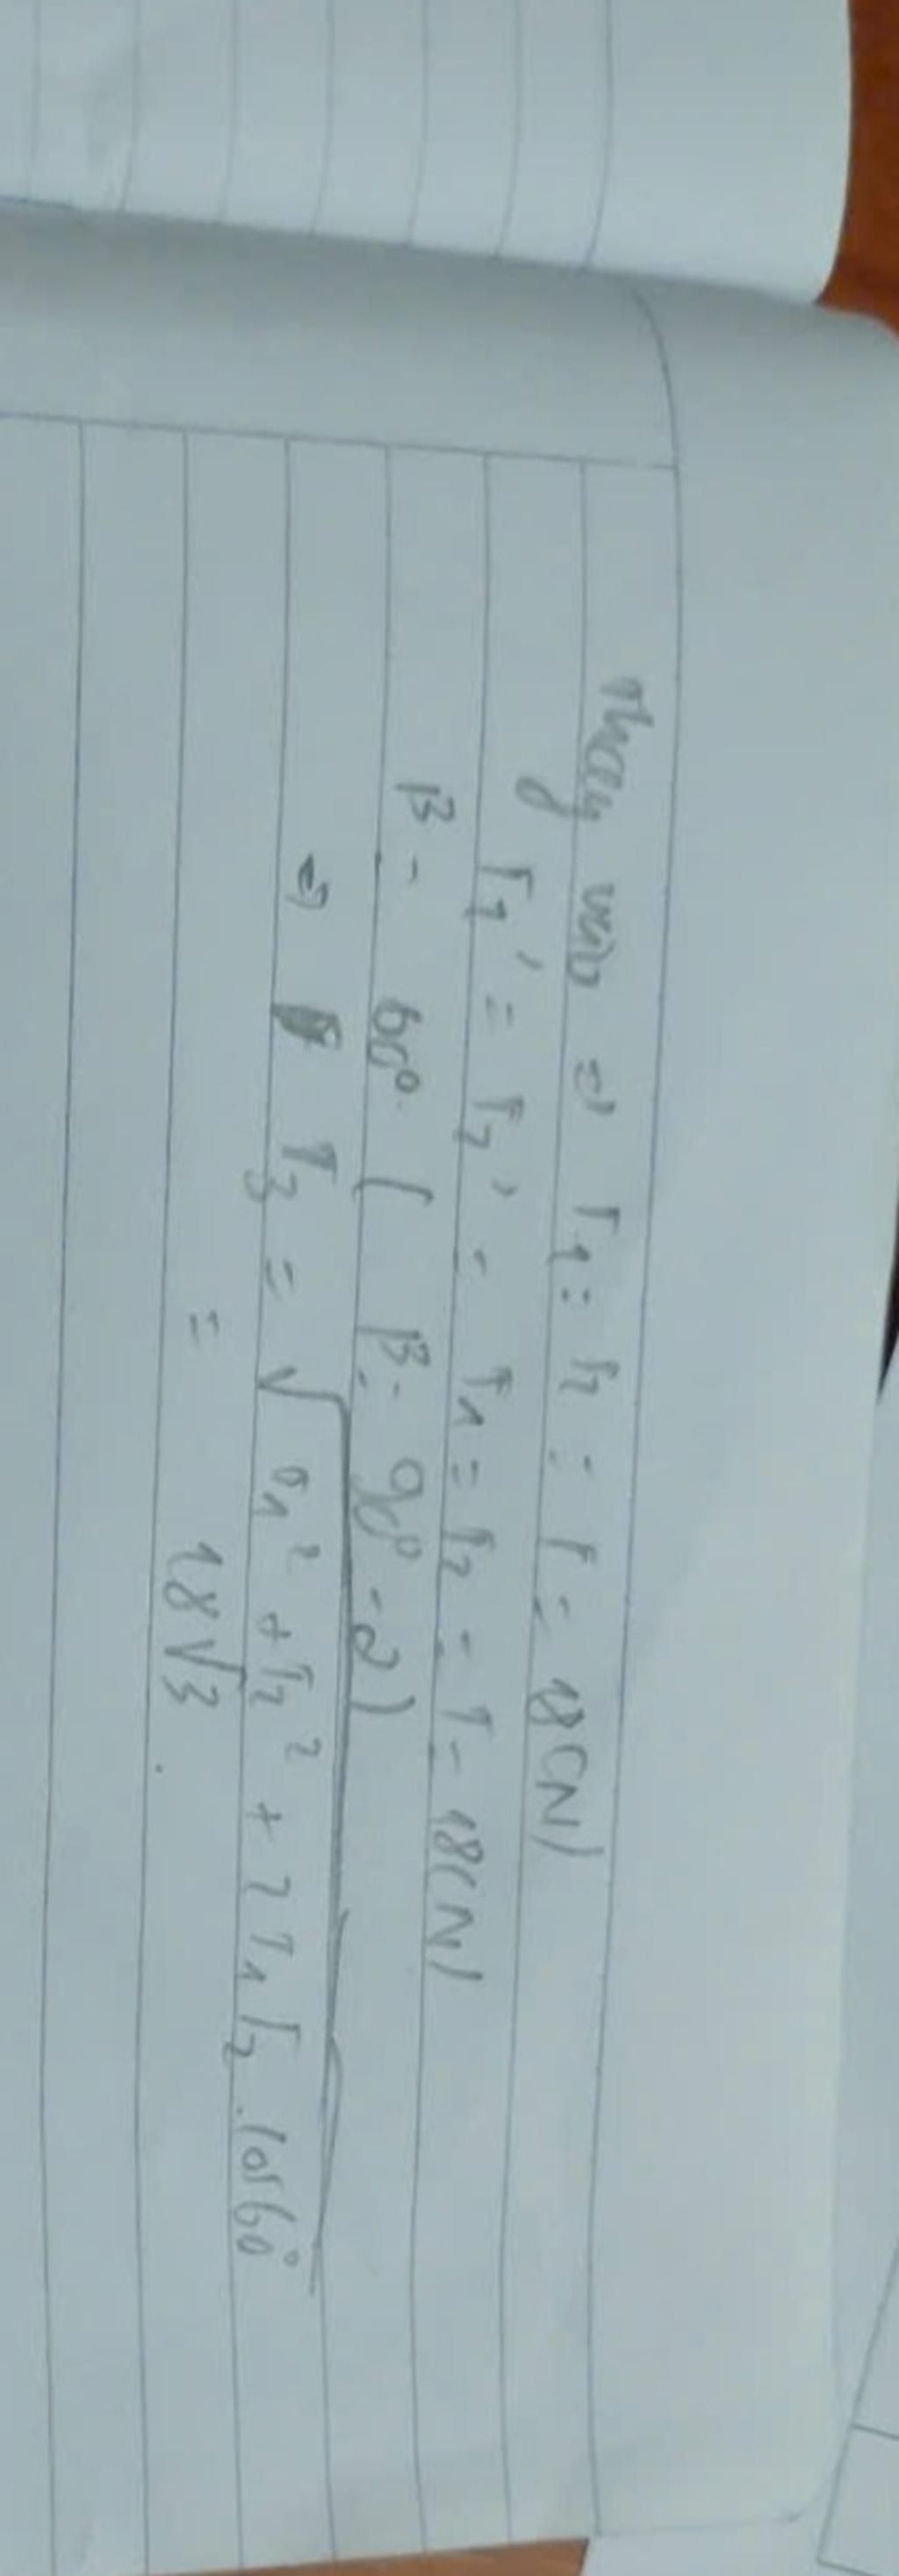 Thay vào ⇒ T1 = T2 = T = 18(N)
T1' = T2' = T1 = T2 = T = 18(N)
β = 60°. ( β = 90° - α )
⇒ T3 = √ T1² + T2² + 2 T1 T2 . cos 60°
= 18√3.